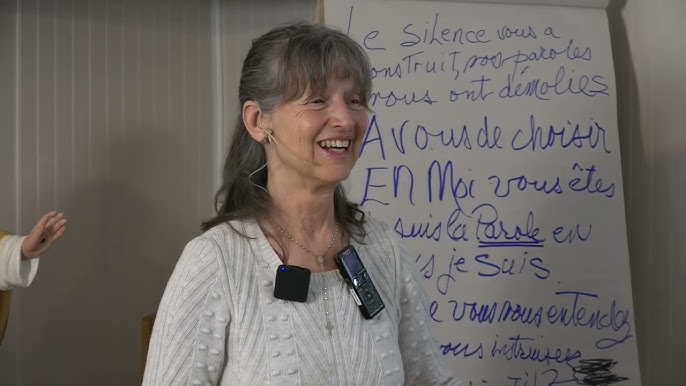 Le silence vous a
construit, vos paroles
nous ont démolies
A vous de choisir
EN Moi vous êtes
suis la Parole en
je suis
vous nous entendez